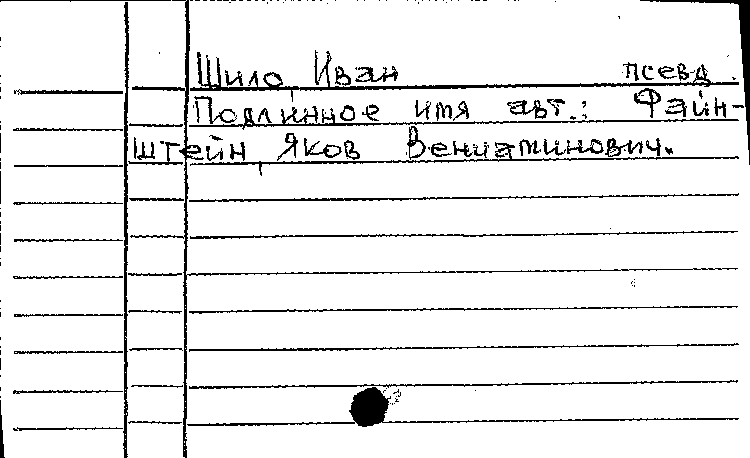 Шило, Иван псевд.
Подлинное имя авт.: Файн-
штейн, Яков Вениаминович.